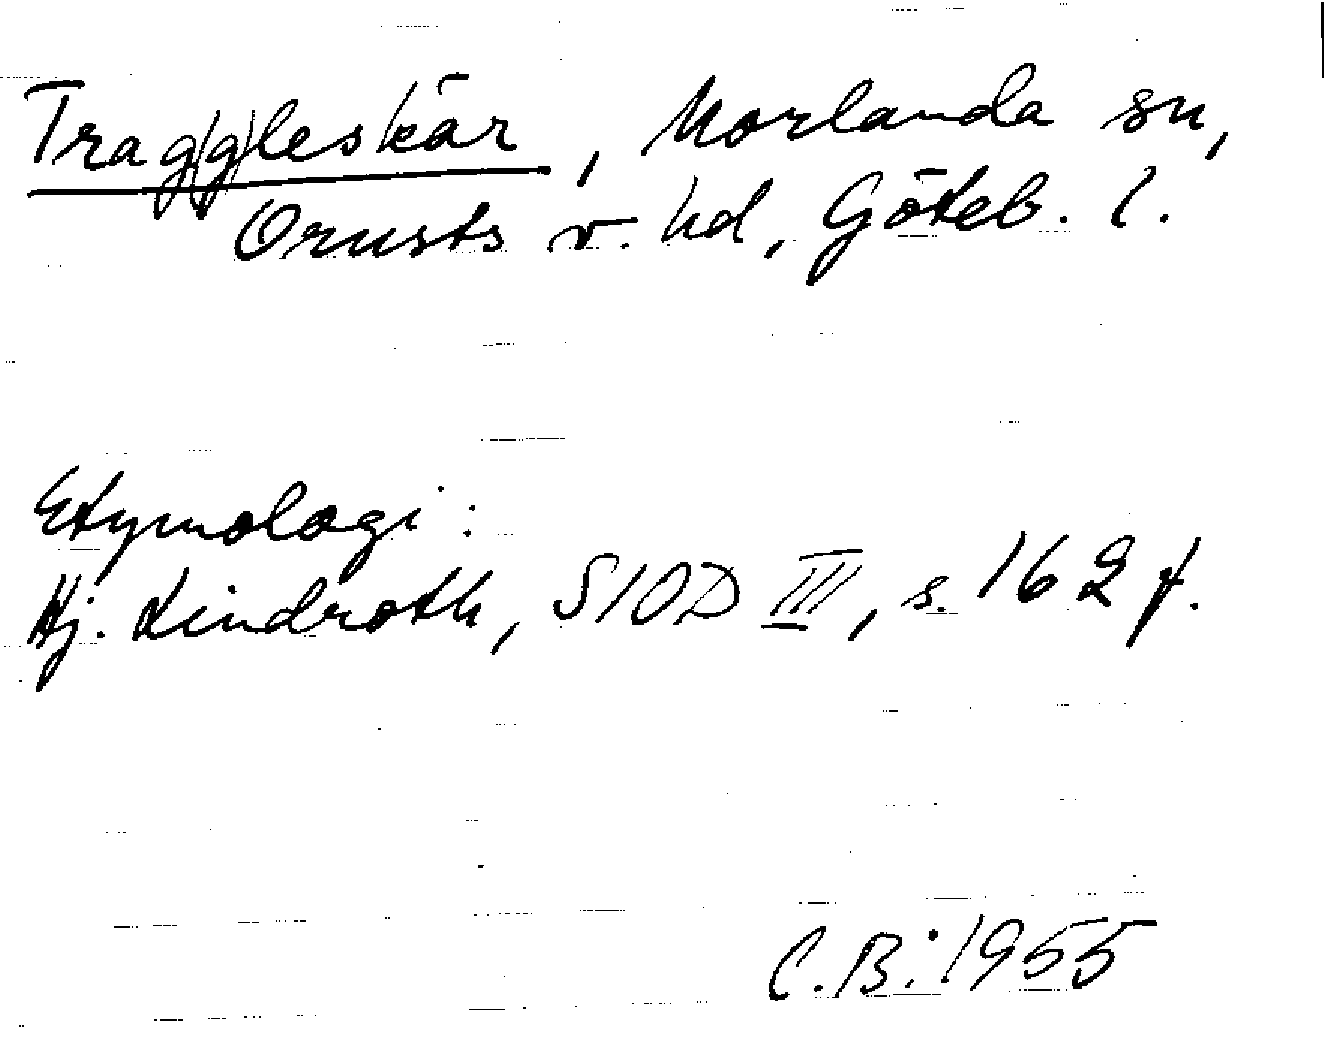 Trag(g)leskär, Morlanda sn,
Orusts v. hd, Göteb. l.
Etymologi:
Hj. Lindroth, SIOD III, s. 162 f.
C.B. 1955